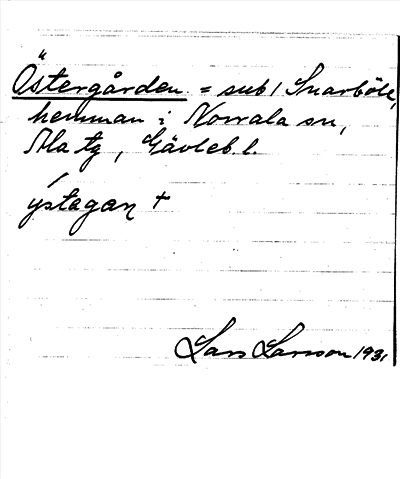 Östergården = sub1 Snarböle,
hemman i Norrala sn,
Ala tg, Gävleb. l.
ýstagaṇ +
Lars Larsson 1931